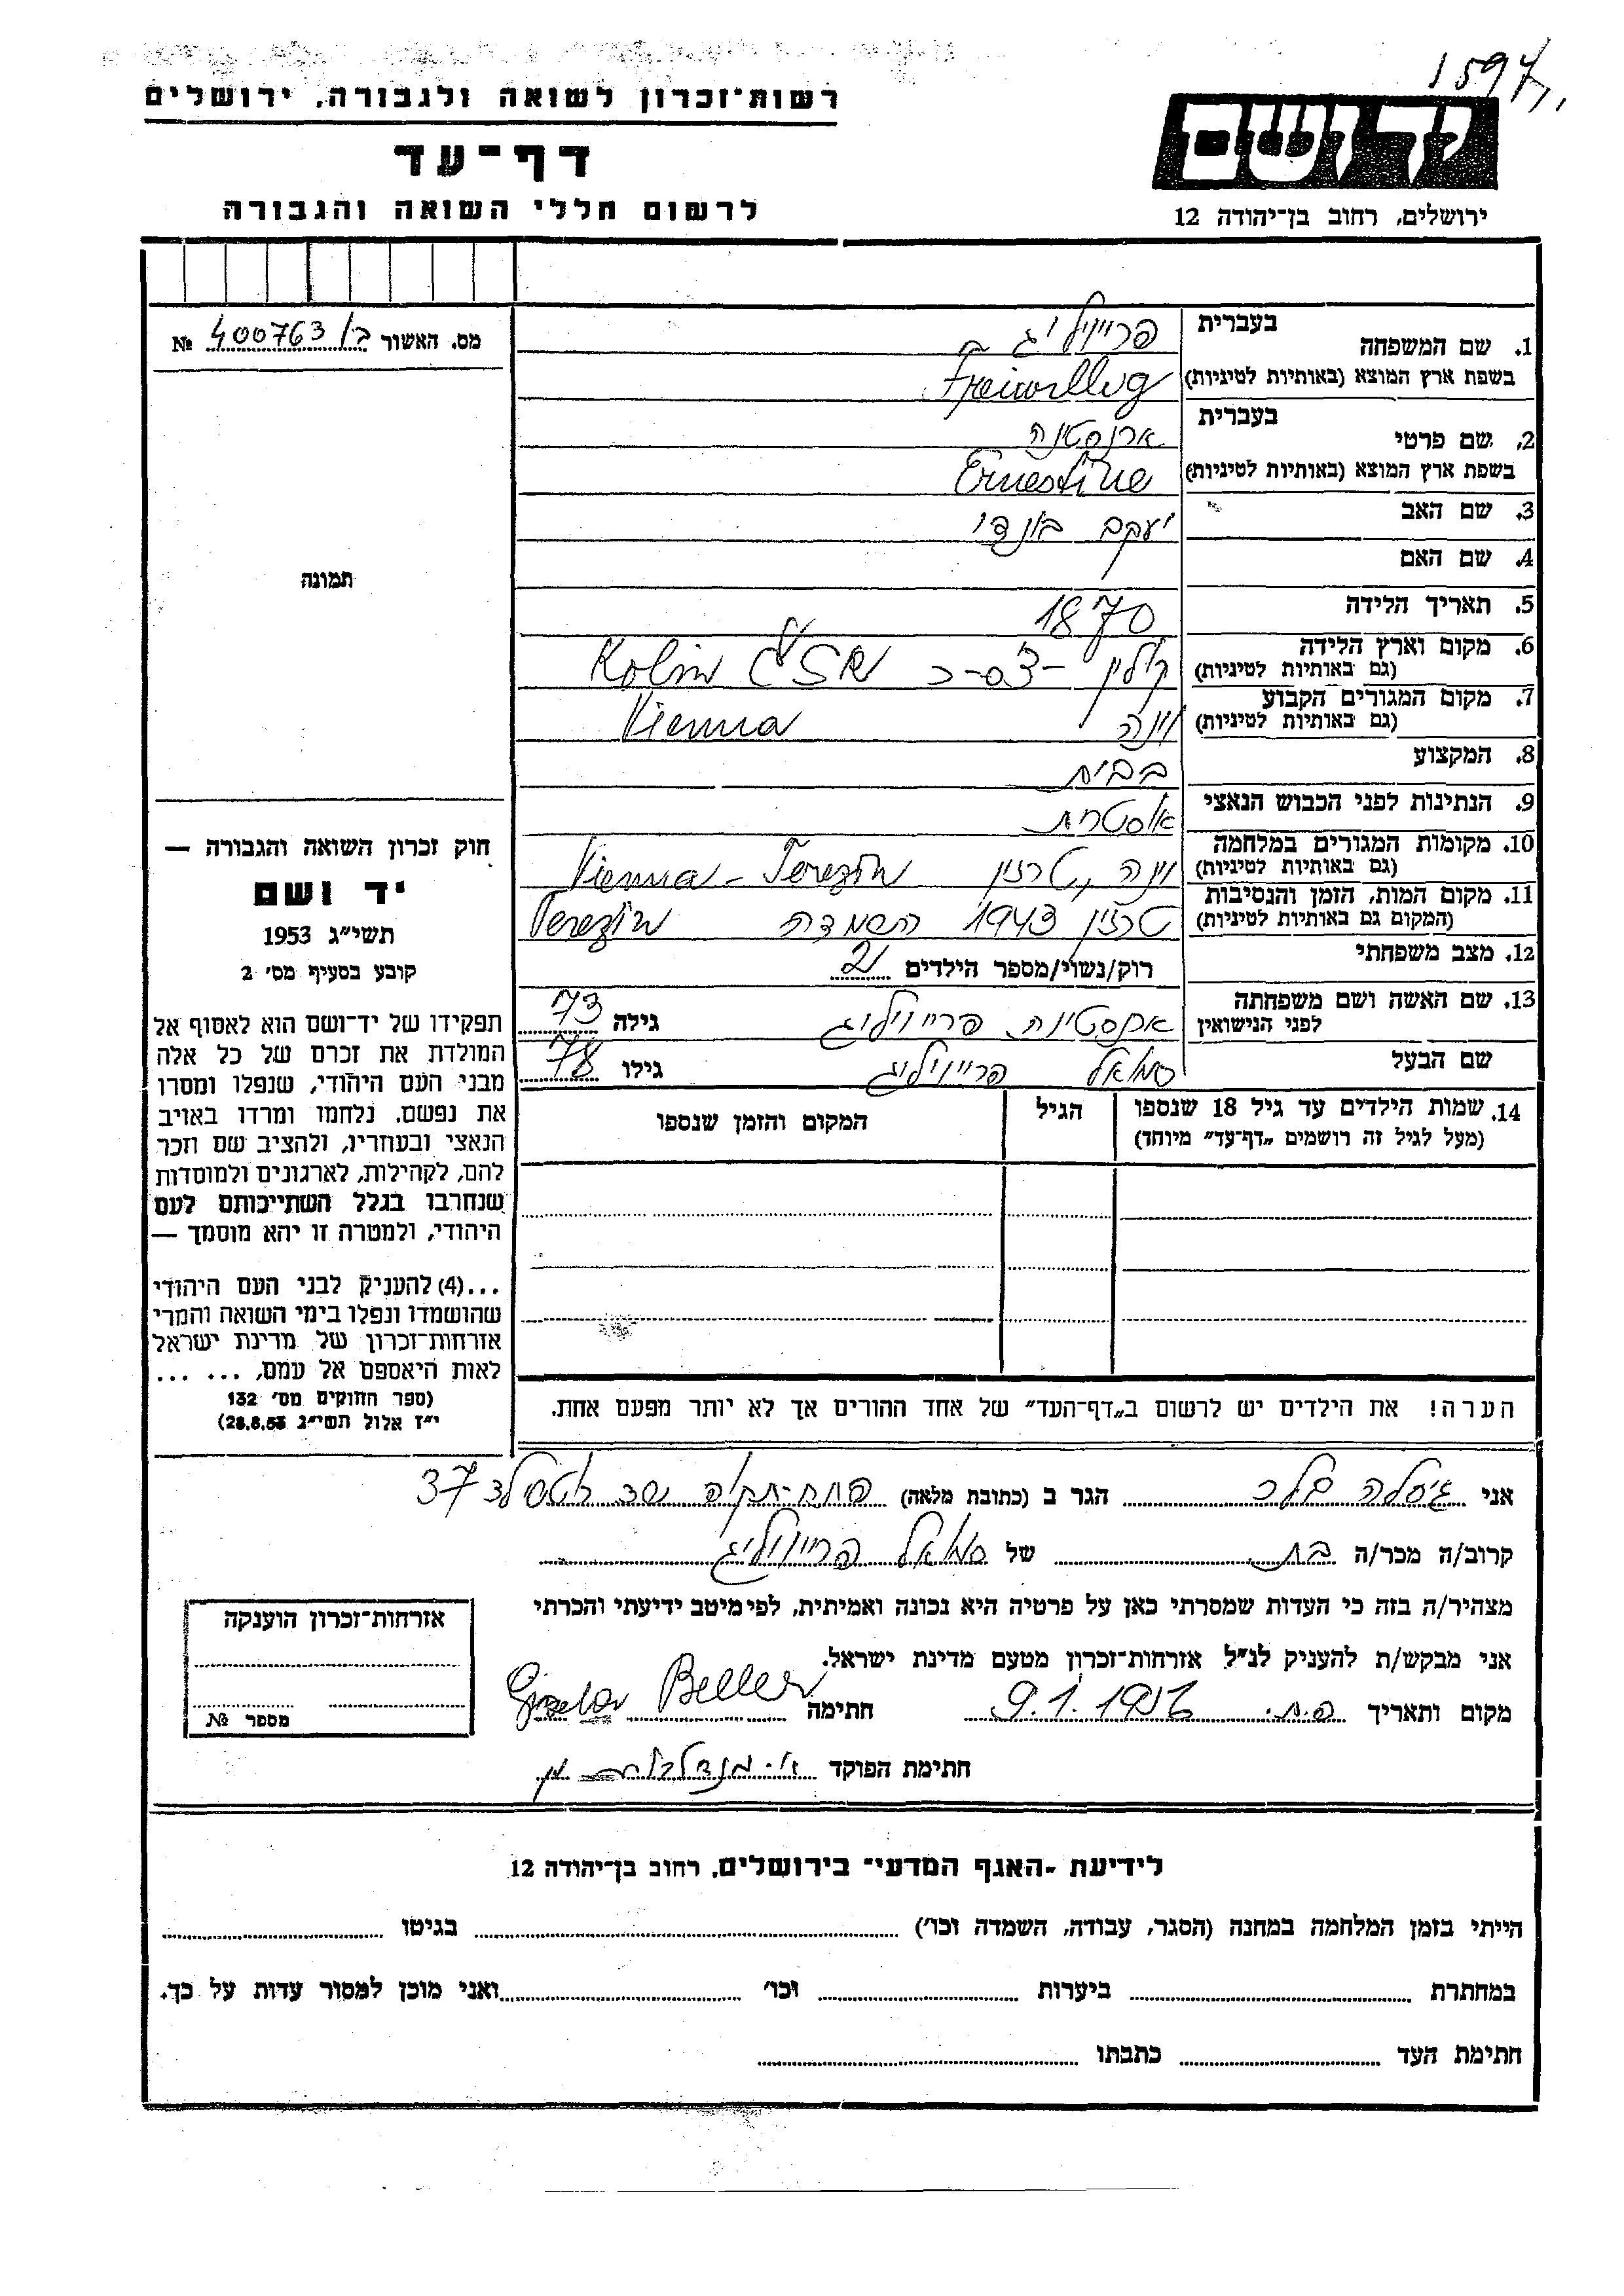 רשות־זכרון לשואה ולגבורה, ירושלים
דף־עד
לרשום חללי השואה והגבורה
יד ושם
ירושלים, רחוב בן־יהודה 12
מס. האשור ב/ 400763 №
תמונה
חוק זכרון השואה והגבורה —
יד ושם
תשי״ג 1953
קובע בסעיף מס׳ 2
תפקידו של יד־ושם הוא לאסוף אל
המולדת את זכרם של כל אלה
מבני העם היהודי, שנפלו ומסרו
את נפשם. נלחמו ומרדו באויב
הנאצי ובעוזריו, ולהציב שם וזכר
להם, לקהילות, לארגונים ולמוסדות
שנחרבו בגלל השתייכותם לעם
היהודי, ולמטרה זו יהא מוסמך —
...(4) להעניק לבני העם היהודי
שהושמדו ונפלו בימי השואה והמרי
אזרחות־זכרון של מדינת ישראל
לאות היאספם אל עמם, ... ...
(ספר החוקים מס׳ 132
י״ז אלול תשי״ג 28.8.53)
בעברית
1. שם המשפחה פרייויליג
בשפת ארץ המוצא (באותיות לטיניות) Freiwillig
בעברית
2. שם פרטי ארנסטינה
בשפת ארץ המוצא (באותיות לטיניות) Ernestine
3. שם האב יעקב בונדי
4. שם האם
5. תאריך הלידה 1870
6. מקום וארץ הלידה
(גם באותיות לטיניות) קולין Kolin ČSR
7. מקום המגורים הקבוע
(גם באותיות לטיניות) וינה Vienna
8. המקצוע בבית
9. הנתינות לפני הכבוש הנאצי אוסטרית
10. מקומות המגורים במלחמה
(גם באותיות לטיניות) וינה, טרזין Vienna - Terezin
11. מקום המות, הזמן והנסיבות
(המקום גם באותיות לטיניות) טרזין 1943 השמדה Terezin
12. מצב משפחתי רוק/נשוי/מספר הילדים 2
13. שם האשה ושם משפחתה
לפני הנישואין ארנסטינה פרייויליג גילה 73
שם הבעל סמואל פרייויליג גילו 78
14. שמות הילדים עד גיל 18 שנספו
(מעל לגיל זה רושמים „דף־עד״ מיוחד)
הגיל
המקום והזמן שנספו
הערה! את הילדים יש לרשום ב„דף־העד״ של אחד ההורים אך לא יותר מפעם אחת.
אני גיזלה בלר הגר ב (כתובת מלאה) פתח-תקוה 37
קרוב/ה מכר/ה בת של סמואל פרייויליג
מצהיר/ה בזה כי העדות שמסרתי כאן על פרטיה היא נכונה ואמיתית, לפי מיטב ידיעתי והכרתי
אני מבקש/ת להעניק לנ״ל אזרחות־זכרון מטעם מדינת ישראל.
מקום ותאריך פ.ת. 9.1.1956 חתימה Gisela Beller
חתימת הפוקד
אזרחות־זכרון הוענקה
מספר №
לידיעת -האגף המדעי־ בירושלים, רחוב בן־יהודה 12
הייתי בזמן המלחמה במחנה (הסגר, עבודה, השמדה וכו׳) בגיטו
במחתרת ביערות וכו׳ ואני מוכן למסור עדות על כך.
חתימת העד כתבתו